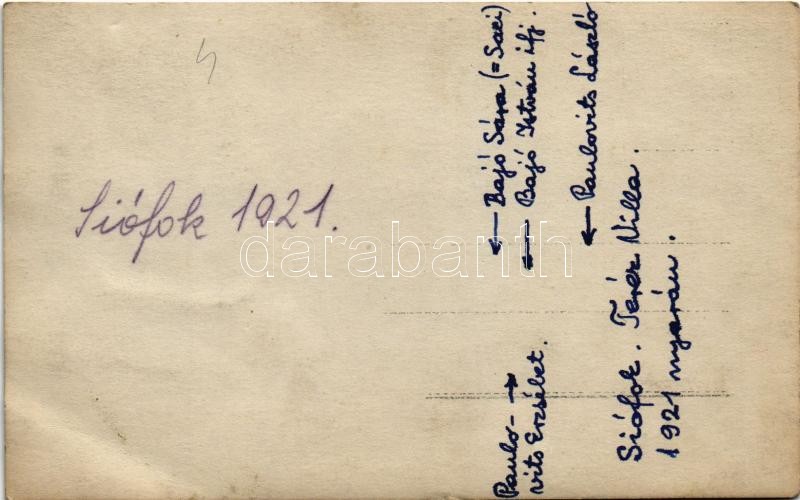 Siófok 1921.
← Bajó Sára (= Saci)
← Bajó István ifj.
← Paulovits László
Paulo- →
vits Erzsébet.
Siófok. Teréz Villa.
1921 nyarán.
darabanth